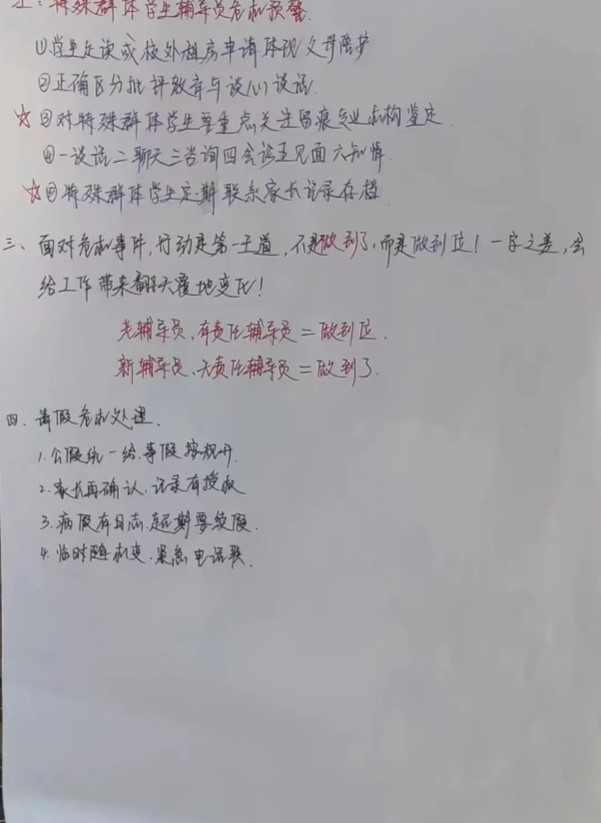 五：特殊群体学生辅导员危机预警.
①学生走读或校外租房申请体现父母陪护
②正确区分批评教育与谈心谈话.
☆③对特殊群体学生要重点关注留痕专业机构鉴定.
④一谈话二聊天三咨询四会谈五见面六知情.
☆⑤特殊群体学生定期联系家长记录存档.
三、面对危机事件,行动是第一王道,不是做到了,而是做到位！一字之差,会
给工作带来翻天覆地变化！
老辅导员、有责任辅导员＝做到位.
新辅导员、无责任辅导员＝做到了.
四、请假危机处理.
1.公假统一给.事假按规开.
2.家长再确认.记录有授权
3.病假有日志.超期要续假.
4.临时随机变.紧急电话联.